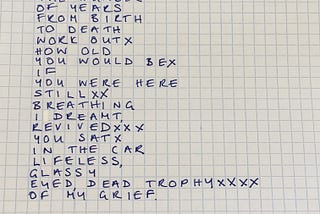 OF YEARS
FROM BIRTH
TO DEATH
WORK OUTX
HOW OLD
YOU WOULD BEX
IF
YOU WERE HERE
STILLXX
BREATHING
I DREAMT,
REVIVEDXXX
YOU SATX
IN THE CAR
LIFELESS,
GLASSY
EYED, DEAD TROPHYXXXX
OF MY GRIEF.